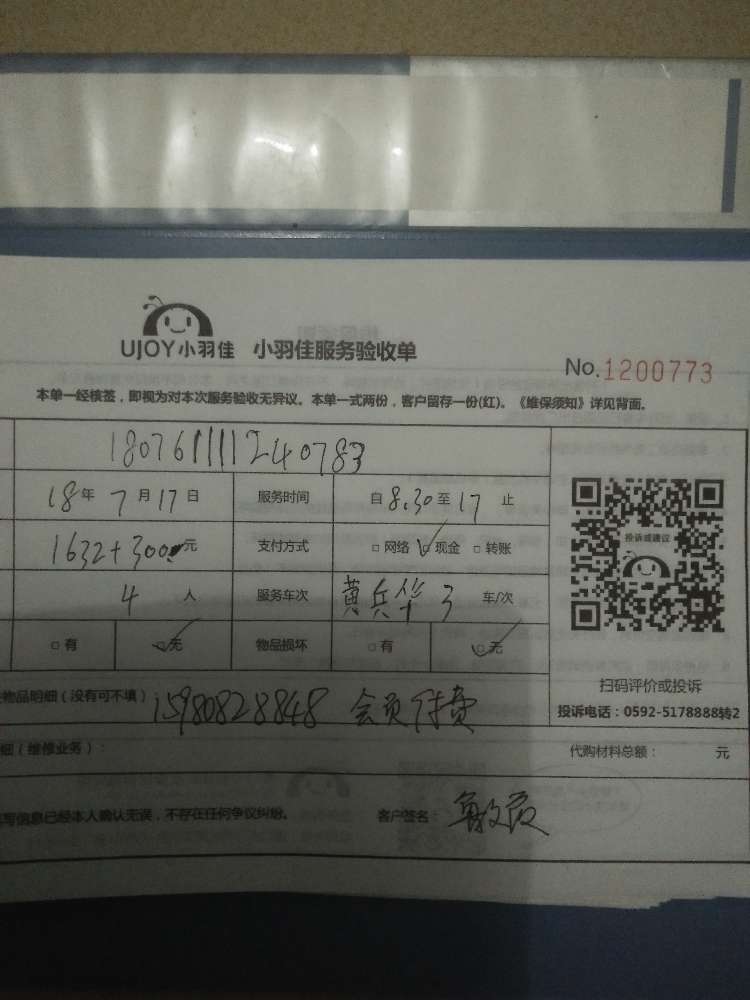 UJOY小羽佳 小羽佳服务验收单
No.1200773
本单一经核签，即视为对本次服务验收无异议。本单一式两份，客户留存一份(红)。《维保须知》详见背面。
180761111240783
18年7月17日 服务时间 自8.30至17止
1632+300元 支付方式 □网络 ☑现金 □转账
投诉或建议
4人 服务车次 黄兵华 3 车/次
□有 ☑无 物品损坏 □有 ☑无
扫码评价或投诉
物品明细（没有可不填） 15980828848 会员付费
投诉电话：0592-5178888转2
细（维修业务）： 代购材料总额： 元
写信息已经本人确认无误，不存在任何争议纠纷。 客户签名：